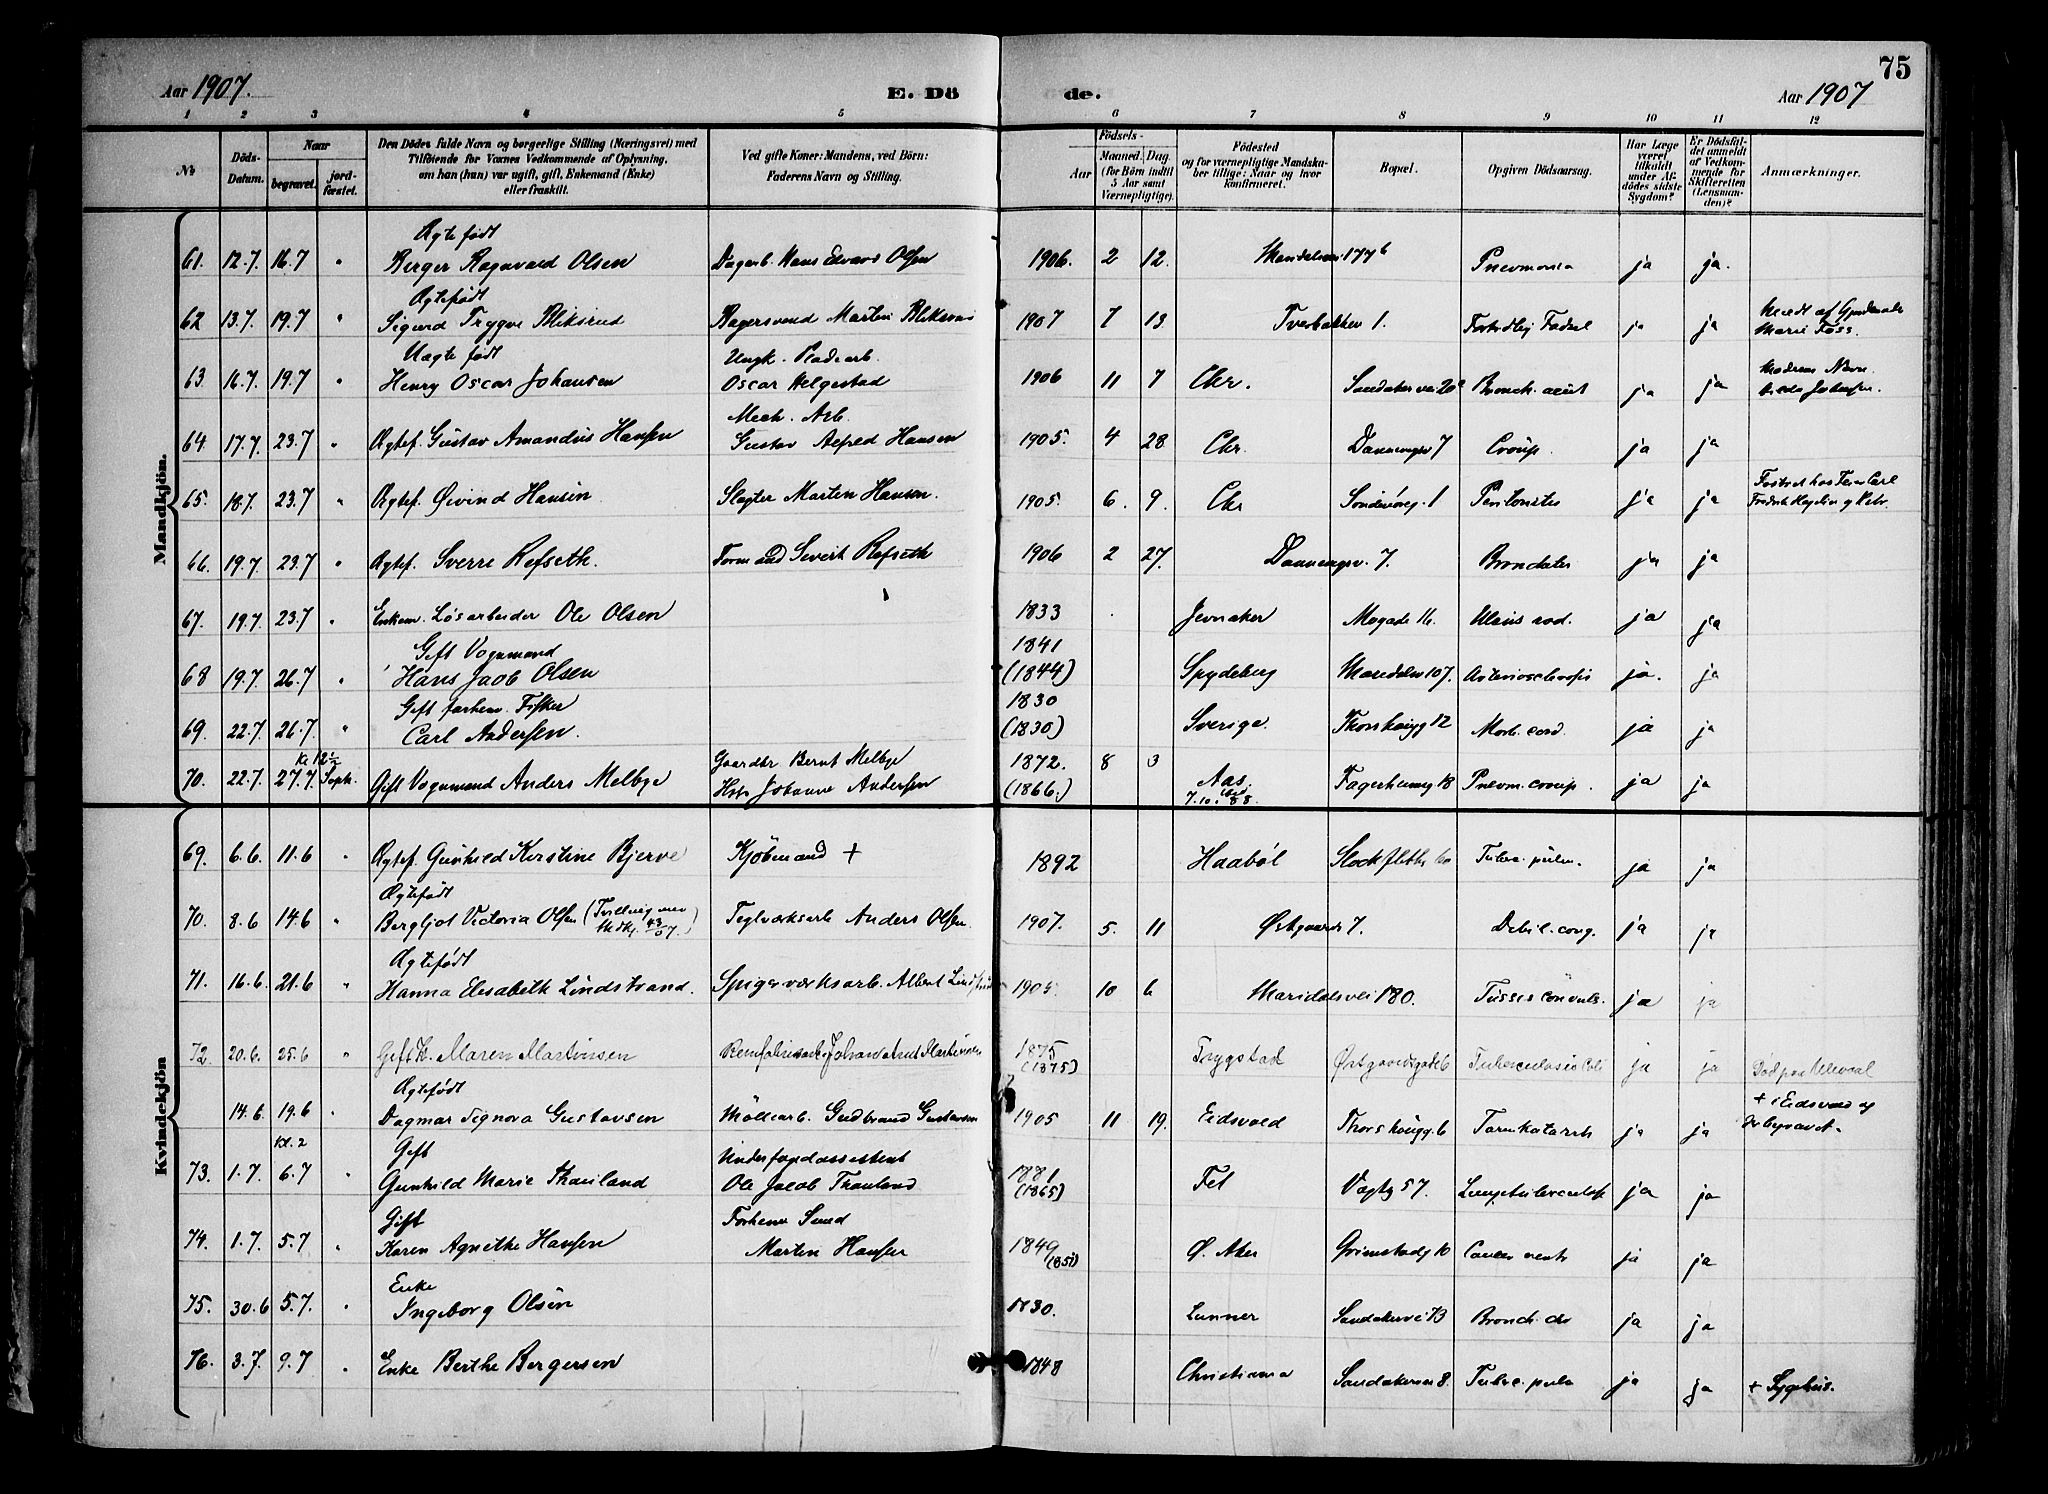 75
Aar 1907.
E. Dö
de.
Aar 1907
1 2 3 4 5 6 7 8 9 10 11 12
No
Döds-Datum.
Naar
begravet.
jord-fæstet.
Den Dödes fulde Navn og borgerlige Stilling (Næringsvei) med
Tilföiende for Voxnes Vedkommende af Oplysning,
om han (hun) var ugift, gift, Enkemand (Enke)
eller fraskilt.
Ved gifte Koner: Mandens, ved Börn:
Faderens Navn og Stilling.
Födsels-
Aar
Maaned. Dag.
(for Börn indtil
5 Aar samt
Værnepligtige).
Födested
og for værnepligtige Mandska-
ber tillige: Naar og hvor
konfirmeret.
Bopæl.
Opgiven Dödsaarsag.
Har Læge
været
tilkaldt
under Af-
dödes sidste
Sygdom?
Er Dödsfal-
det anmeldt
af Vedkom-
mende for
Skifteretten
(Lensman-
den)?
Anmærkninger.
Mandkjön.
Ægtefødt
61. 12.7. 16.7 " Birger Ragnvald Olsen Dagarb. Hans Edvard Olsen 1906. 2 12. 177b Pnevmonia ja ja.
Ægtefødt
62 13.7. 19.7 " Sigurd Trygve Bliksrud Bagersvend Martin 1907 7 13. Tverbakken 1. Fortidlig Fødsel ja ja Meldt af
Marie Foss.
Uægte født Ungk. Pladearb.
63. 16.7. 19.7 " Henry Oscar Johansen Oscar Helgestad 1906 11 7 Chr. Sandakervei 20 Bronch. acut ja ja Moderens Navn
Mech. Arb.
64 17.7. 23.7 " Ægtef. Gustav Amandus Hansen Gustav Alfred Hansen 1905. 4 28 Chr. Dannevigsv 7 Croup. ja ja
65. 18.7. 23.7 " Ægtef. Øivind Hansen Slagter Martin Hansen. 1905. 6. 9. Chr 1 Peritonitis ja ja
66. 19.7. 23.7 " Ægtef. Sverre Refseth. Formand Sivert Refseth 1906 2 27. Dannevigsv. 7. ja ja
67. 19.7. 23.7 " Enkem. Løsarbeider Ole Olsen 1833 Jevnaker Mogade 16. ja ja
Gift Vognmand 1841
68 19.7. 26.7 " Hans Jacob Olsen (1844) Spydeberg Maridalsv 107. ja. ja
Gift forhenv. Fisker 1830
69. 22.7. 26.7. " Carl Andersen. (1830) Sverige. Thorshaugg 12 Morb. cord. ja ja
Kl 12½ Gaardbr Bernt Melbye 1872. 8 3
70. 22.7. 27.7 Gift Vognmand Anders Melbye Johanne Andersen (1866.) Aas. Fagerheimg 18 Pnevm. croup. ja ja
7.10. 88.
Kvindekjön
69. 6.6. 11.6 " Ægtef. Gunhild Kirstine Bjerve Kjöbmand + 1892 Haabøl Stockfleths Tuberc. pulm. ja ja
Ægtefødt
70. 8.6 14.6 " Bergljot Victoria Olsen (Tvilling med Mdkj. 43/07.) Teglværksarb Anders Olsen. 1907. 5. 11 Østgaards 7. Debil. cong. ja ja
Ægtefødt
71. 16.6. 21.6 " Hanna Elisabeth Lindstrand. Spigerværksarb. Albert 1905 10 6 Maridalsvei 180. Tussis convuls. ja ja
72. 20.6. 25.6 " Gift Maren Martinsen 1875 (1875) Trygstad Østgaardsgade 6 ja ja Död paa Ullevaal
Ægtefødt + i Eidsvold og
14.6. 19.6 " Dagmar Signora Gustavsen Møllearb. Gudbrand Gustavsen 1905 11 19. Eidsvold Thorshaugg. 6 Tarmkatarrh ja ja
Kl. 2 Gift
73. 1.7. 6.7 " Gunhild Marie Thauland Ole Jacob Thauland 1881 (1865) Fet Vogtg 57. Lungetuberculose ja ja
Gift Forhenv Smed
74. 1.7. 5.7 " Karen Agnethe Hansen Martin Hansen 1849 (1851) Ø. Aker Grimstadg 10 Cancer ventr ja ja
Enke
75. 30.6 5.7. " Ingeborg Olsen 1830. Lunner Sandakervei 73 Bronch. chr ja ja
76. 3.7. 9.7 " Enke Berthe Bergersen 1848 Christiania Sandakervei 8. Tuberc. pulm ja ja + Sygehus.